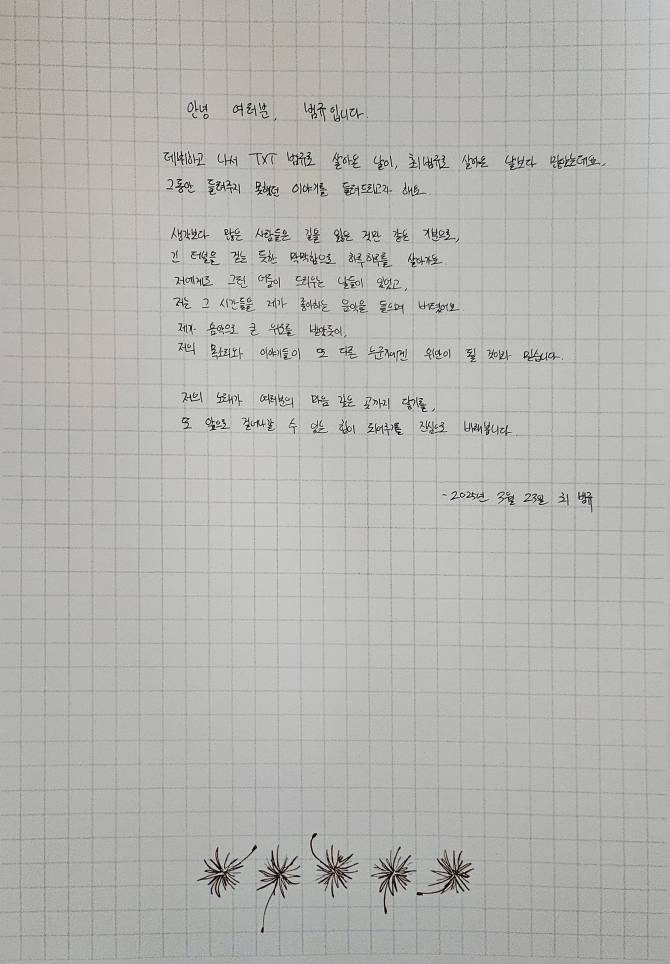 안녕 여러분, 범규입니다.
데뷔하고 나서 TXT 범규로 살아온 날이, 최범규로 살아온 날보다 많았는데요.
그동안 들려주지 못했던 이야기를 들려드리고자 해요.
생각보다 많은 사람들은 길을 잃은 것만 같은 기분으로,
긴 터널을 걷는 듯한 막막함으로 하루하루를 살아가요.
저에게도 그런 어둠이 드리우는 날들이 있었고,
저는 그 시간들을 제가 좋아하는 음악을 들으며 버텼어요.
제가 음악으로 큰 위로를 받았듯이,
저의 목소리와 이야기들이 또 다른 누군가에겐 위안이 될 것이라 믿습니다.
저의 노래가 여러분의 마음 깊은 곳까지 닿기를,
또 앞으로 걸어나갈 수 있는 힘이 되어주기를 진심으로 바래봅니다.
- 2025년 3월 23일 최 범규